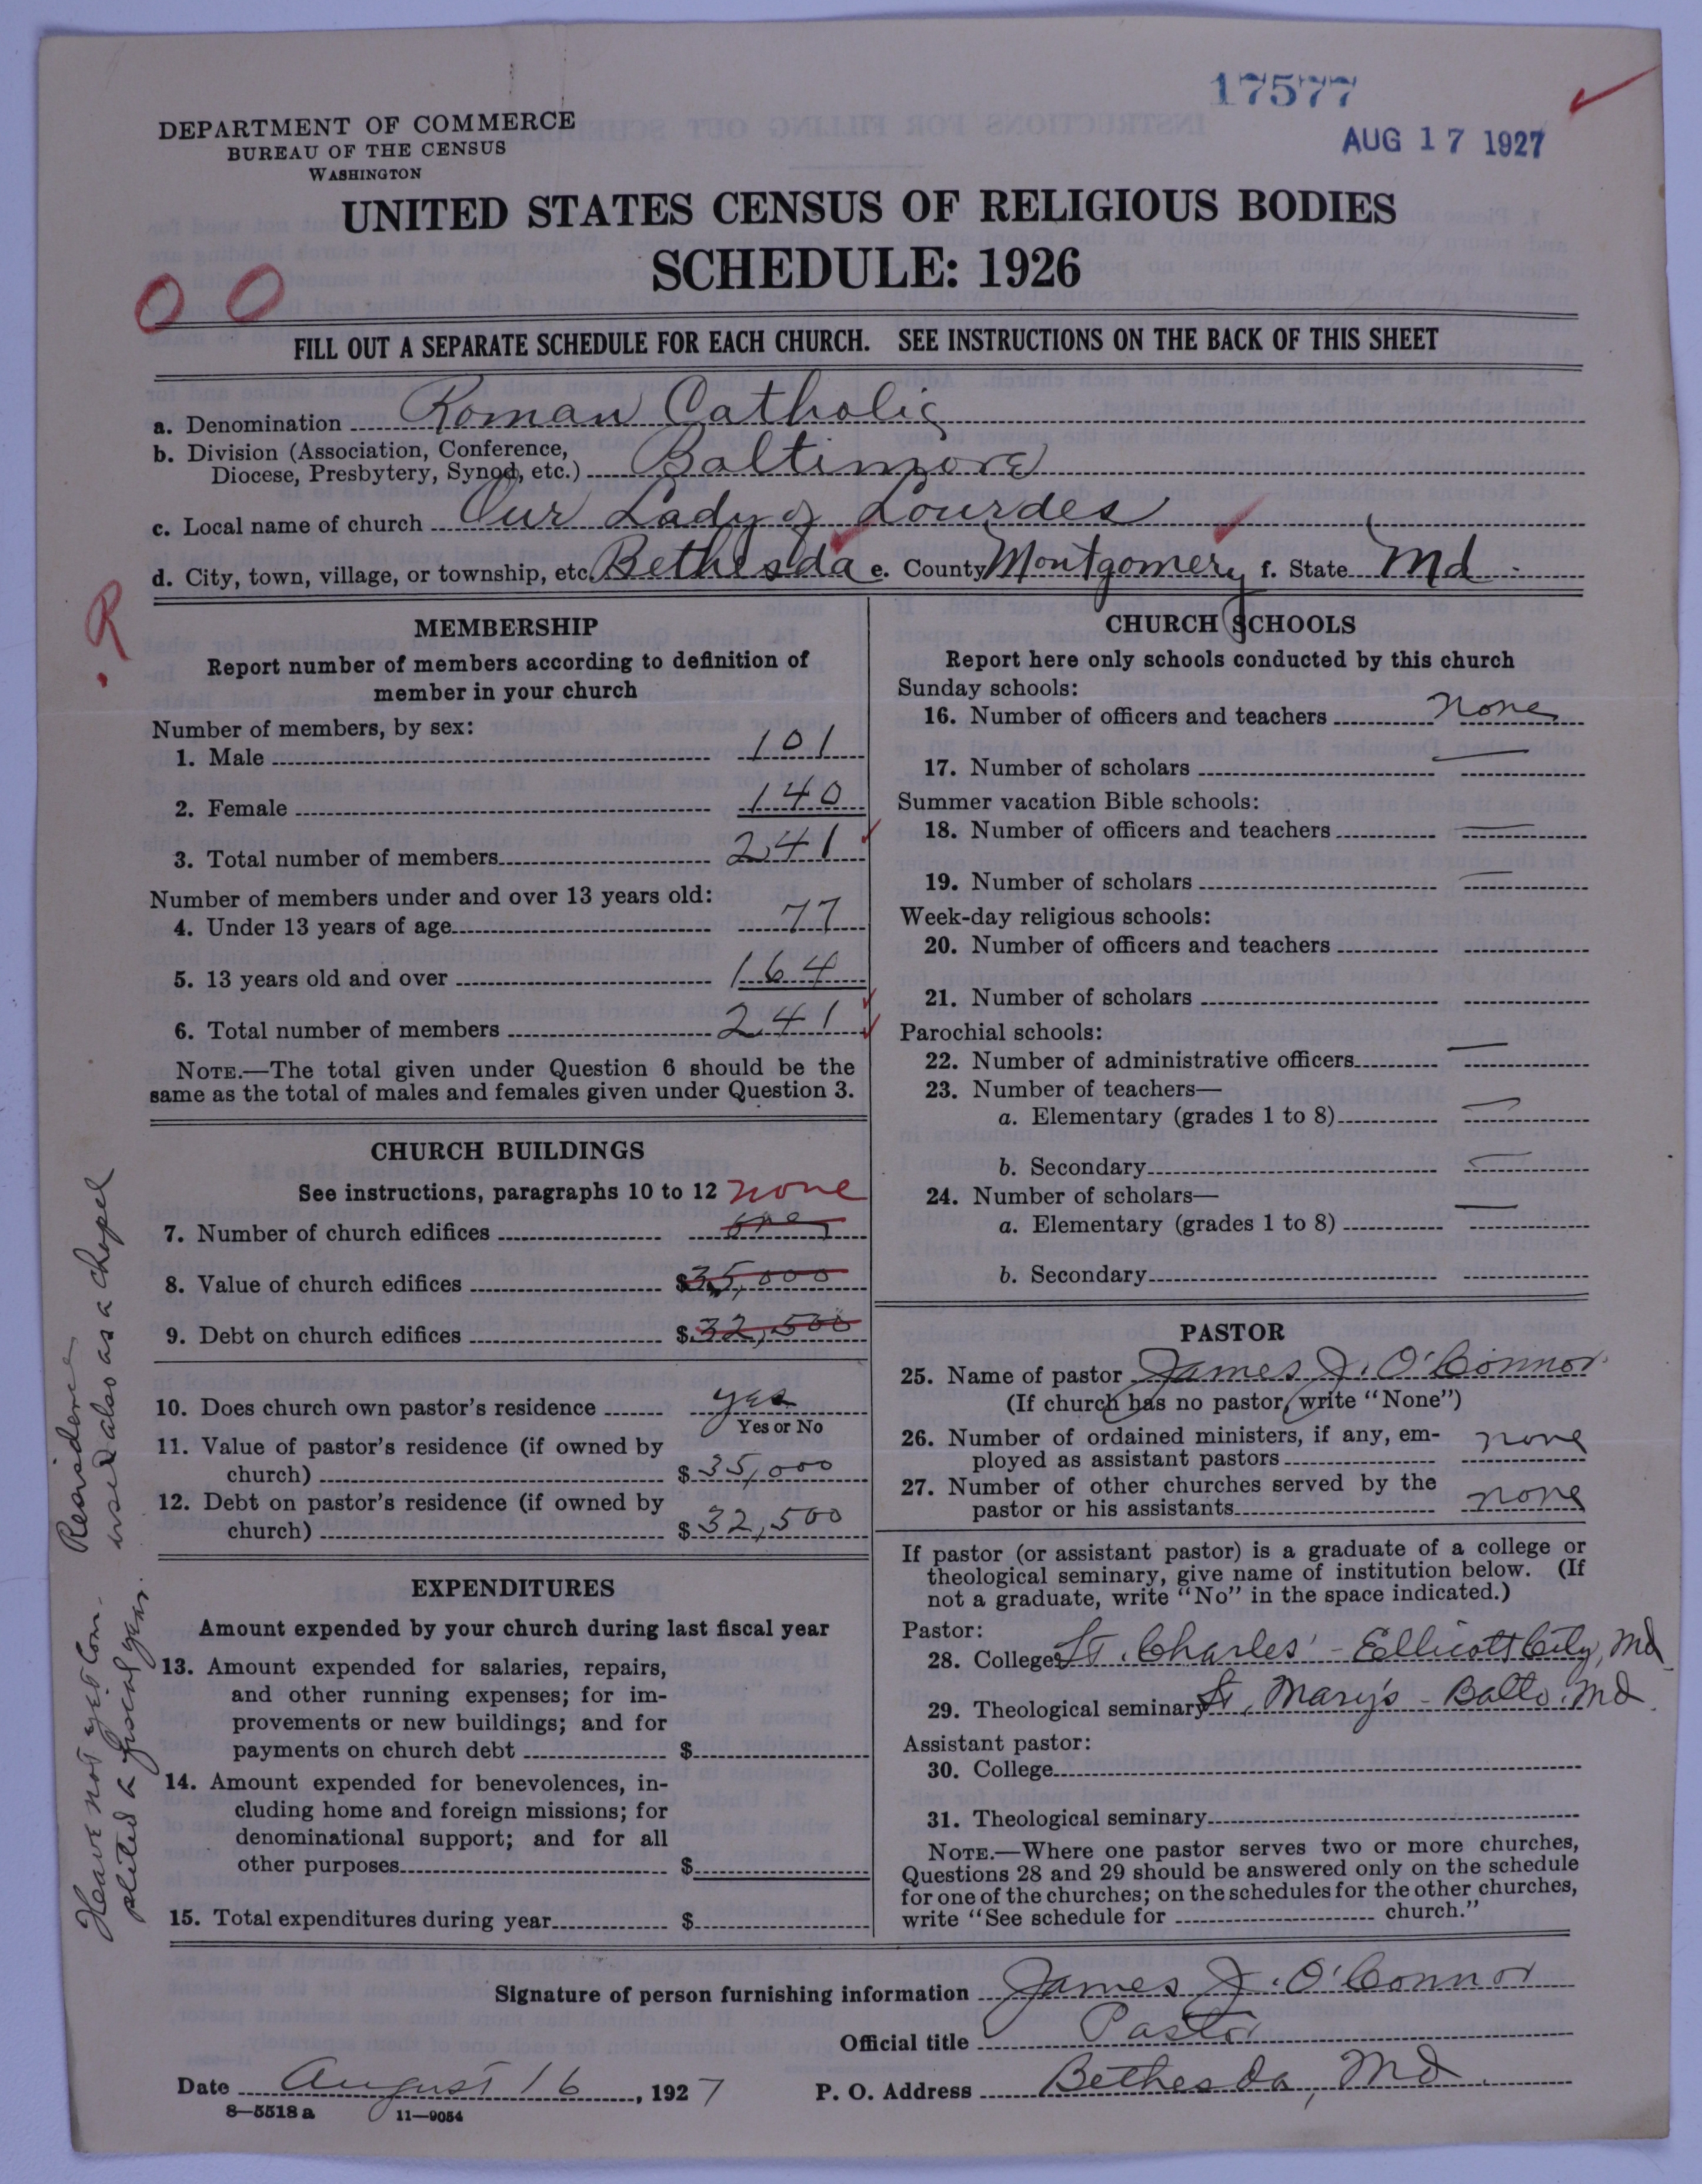 17577
AUG 17 1927
DEPARTMENT OF COMMERCE
BUREAU OF THE CENSUS
WASHINGTON
UNITED STATES CENSUS OF RELIGIOUS BODIES
SCHEDULE: 1926
0 0
FILL OUT A SEPARATE SCHEDULE FOR EACH CHURCH. SEE INSTRUCTIONS ON THE BACK OF THIS SHEET
a. Denomination Roman Catholic
b. Division (Association, Conference,
Diocese, Presbytery, Synod, etc.) Baltimore
c. Local name of church Our Lady of Lourdes
d. City, town, village, or township, etc. Bethesda e. County Montgomery f. State Md.
R
MEMBERSHIP
Report number of members according to definition of
member in your church
Number of members, by sex:
1. Male 101
2. Female 140
3. Total number of members 241
Number of members under and over 13 years old:
4. Under 13 years of age 77
5. 13 years old and over 164
6. Total number of members 241
NOTE.—The total given under Question 6 should be the
same as the total of males and females given under Question 3.
CHURCH BUILDINGS
See instructions, paragraphs 10 to 12 none
7. Number of church edifices one
8. Value of church edifices $35,000
9. Debt on church edifices $32,500
10. Does church own pastor's residence yes
Yes or No
11. Value of pastor's residence (if owned by
church) $35,000
12. Debt on pastor's residence (if owned by
church) $32,500
Residence
used also as a chapel
EXPENDITURES
Amount expended by your church during last fiscal year
13. Amount expended for salaries, repairs,
and other running expenses; for im-
provements or new buildings; and for
payments on church debt $
14. Amount expended for benevolences, in-
cluding home and foreign missions; for
denominational support; and for all
other purposes $
15. Total expenditures during year $
Have not yet com-
pleted a fiscal year.
CHURCH SCHOOLS
Report here only schools conducted by this church
Sunday schools:
16. Number of officers and teachers none
17. Number of scholars —
Summer vacation Bible schools:
18. Number of officers and teachers —
19. Number of scholars —
Week-day religious schools:
20. Number of officers and teachers
21. Number of scholars
Parochial schools:
22. Number of administrative officers —
23. Number of teachers—
a. Elementary (grades 1 to 8) —
b. Secondary —
24. Number of scholars—
a. Elementary (grades 1 to 8) —
b. Secondary
PASTOR
25. Name of pastor James J. O'Connor
(If church has no pastor, write "None")
26. Number of ordained ministers, if any, em-
ployed as assistant pastors none
27. Number of other churches served by the
pastor or his assistants none
If pastor (or assistant pastor) is a graduate of a college or
theological seminary, give name of institution below. (If
not a graduate, write "No" in the space indicated.)
Pastor:
28. College St. Charles' - Ellicott City, Md
29. Theological seminary St. Mary's - Balto. Md.
Assistant pastor:
30. College
31. Theological seminary
NOTE.—Where one pastor serves two or more churches,
Questions 28 and 29 should be answered only on the schedule
for one of the churches; on the schedules for the other churches,
write "See schedule for church."
Signature of person furnishing information James J. O'Connor
Official title Pastor
Date August 16, 1927 P. O. Address Bethesda, Md.
8—5518 a 11—9054